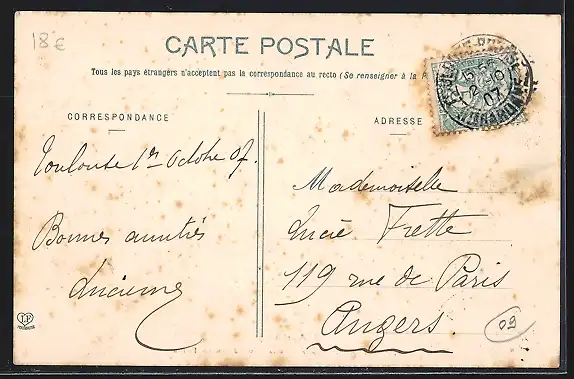 18€
CARTE POSTALE
Tous les pays étrangers n'acceptent pas la correspondance au recto (Se renseigner à la P
CORRESPONDANCE
ADRESSE
Toulouse 1er Octobre 07.
Bonnes amitiés
Lucienne
Mademoiselle
Lucie Frette
119 rue de Paris
Angers.
09